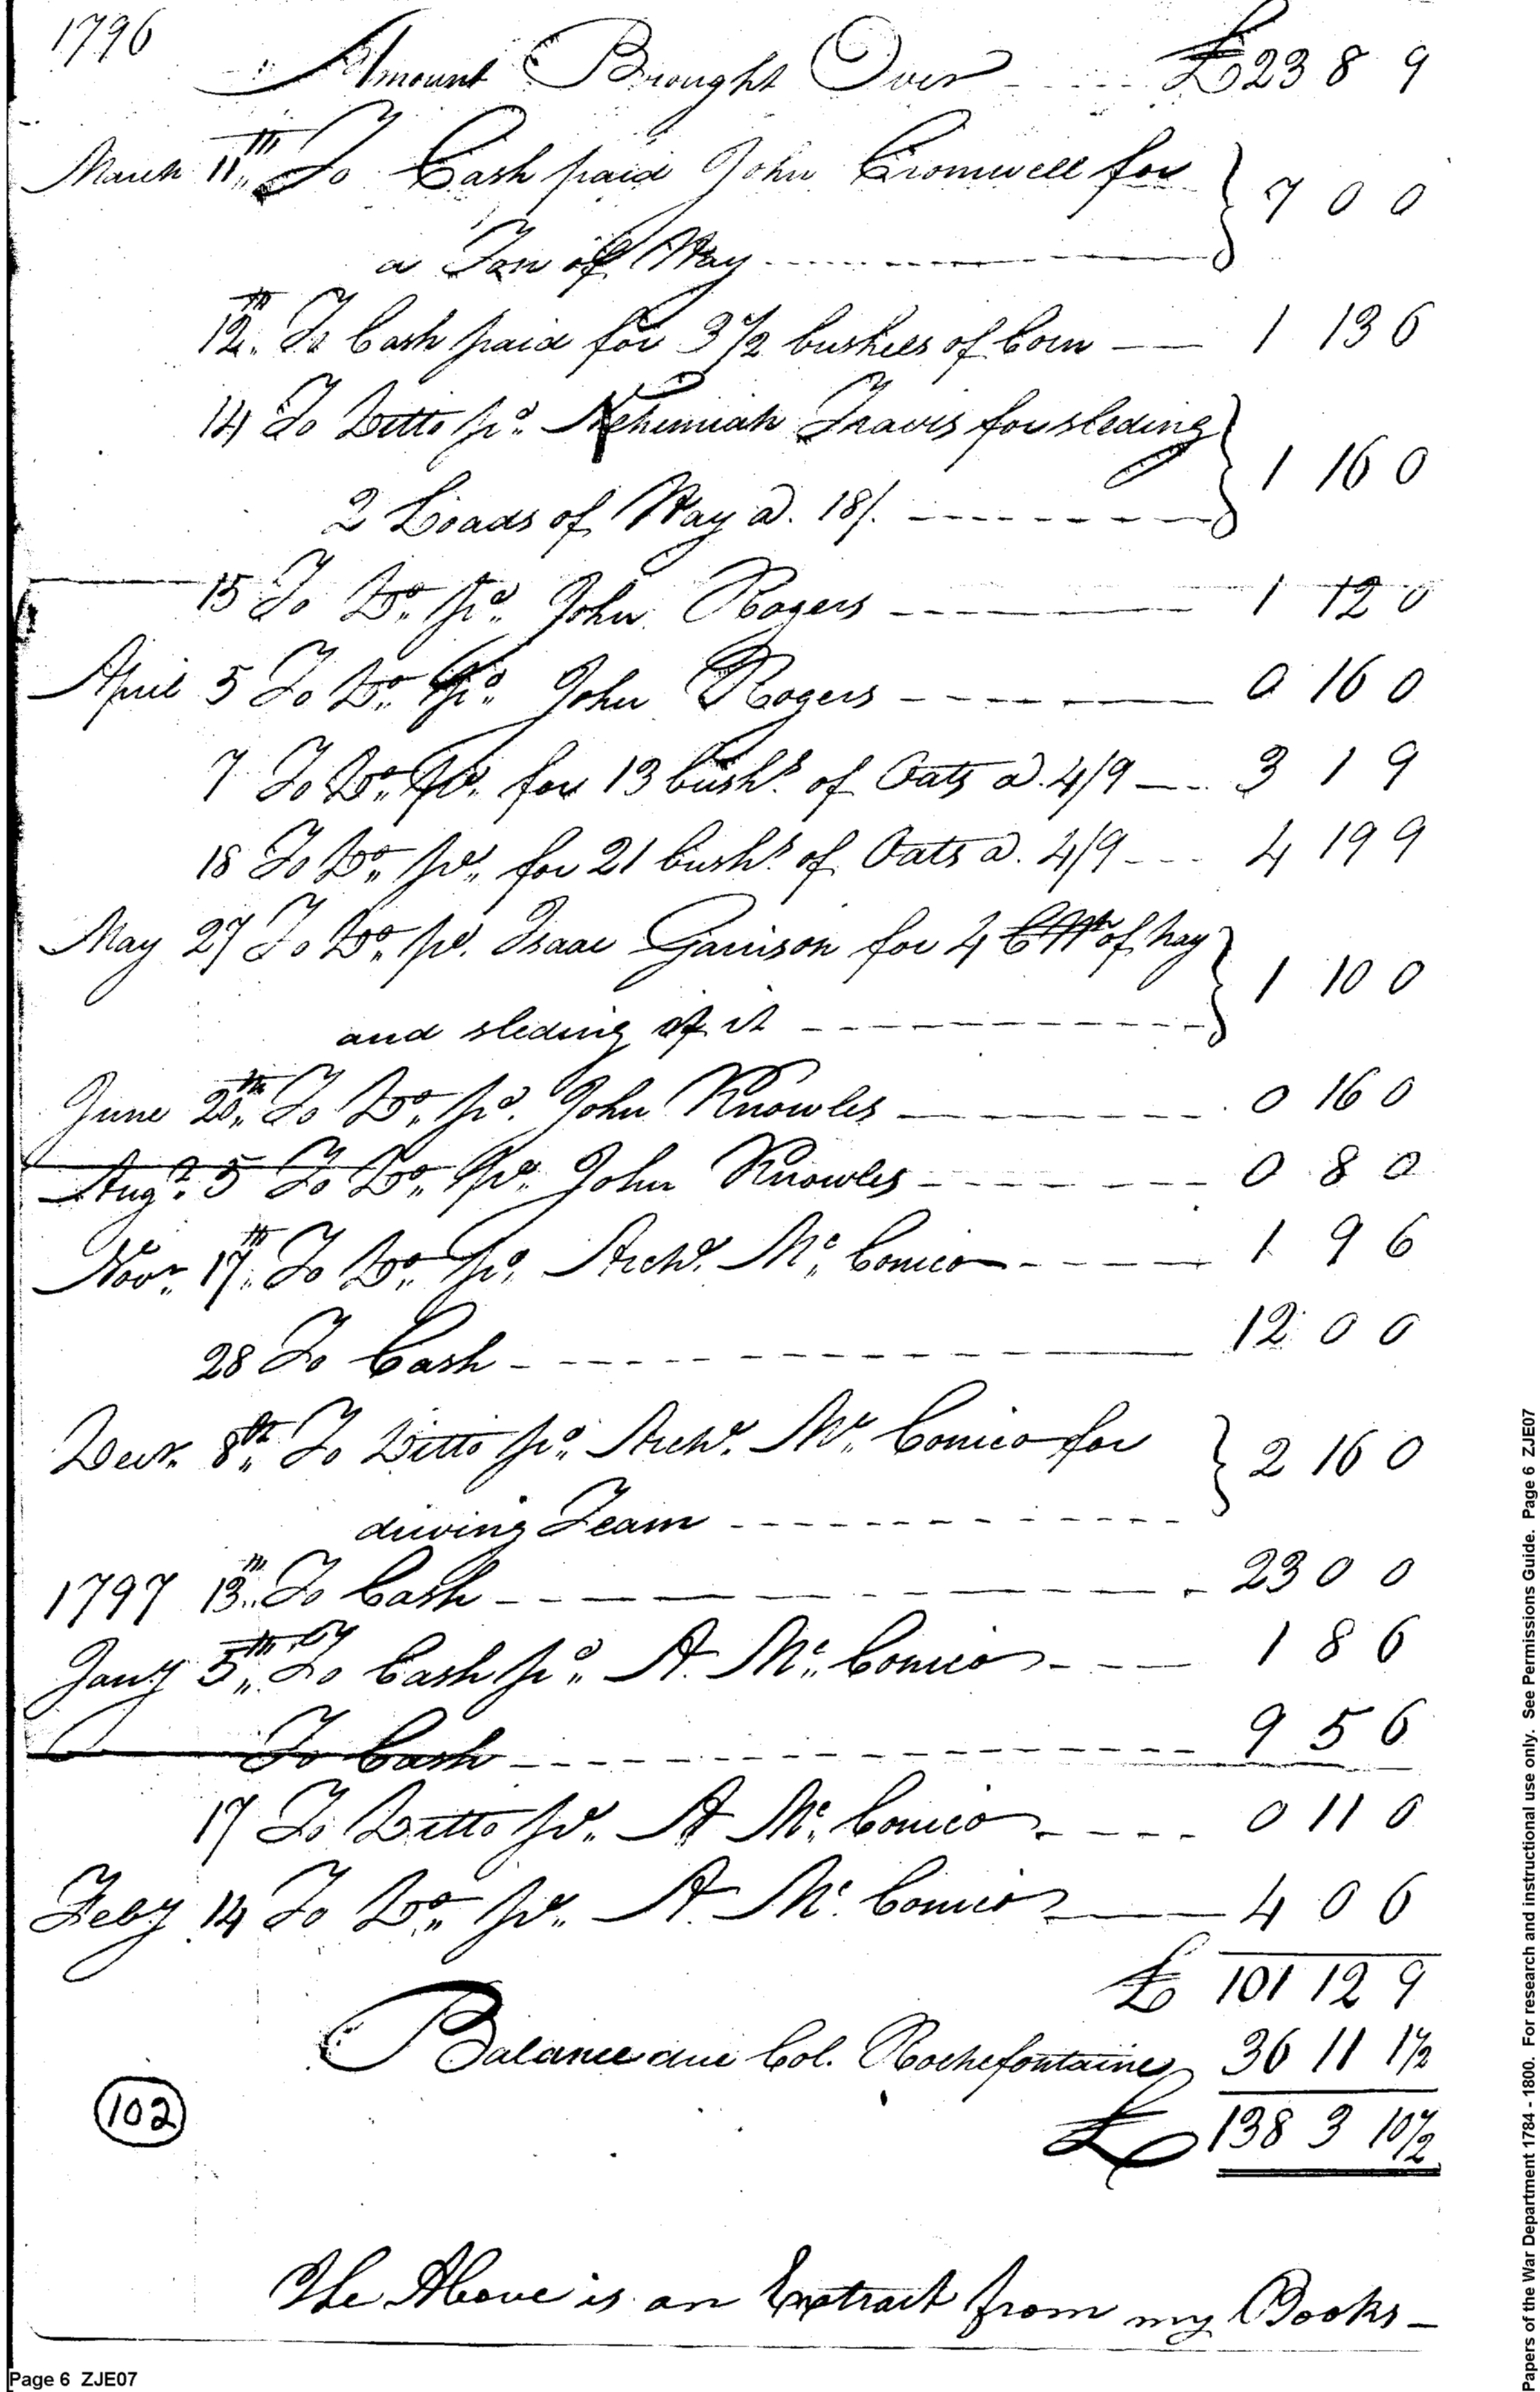 1796
Amount Brought Over £23 8 9
March 11th To Cash paid John Cromwell for
a Ton of Hay 7 0 0
12th To Cash paid for 3 1/2 bushels of Corn 1 13 6
14 To Ditto pd. Nehemiah Travis for sleding
2 Loads of Hay @ 18/. 1 16 0
15 To Do. pd. John Rogers 1 12 0
April 5 To Do. pd. John Rogers 0 16 0
7 To Do. pd. for 13 bushs. of Oats @ 4/9 3 1 9
18 To Do. pd. for 21 bushs. of Oats @ 4/9 4 19 9
May 27 To Do. pd. Isaac Garrison for 4 CWt of hay
and sleding of it 1 10 0
June 20th To Do. pd. John Knowles 0 16 0
Augt. 5 To Do. pd. John Knowles 0 8 0
Novr. 17th To Do. pd. Archd. Mc. Comico 1 9 6
28 To Cash 12 0 0
Decr. 8th To Ditto pd. Archd. Mc. Comico for
driving Team 2 16 0
1797 13th To Cash 23 0 0
Jany 5th To Cash pd. A. Mc. Comico 1 8 6
To Cash 9 5 6
17 To Ditto pd. A Mc. Comico 0 11 0
Feby 14 To Do. pd. A. Mc. Comico 4 0 6
£ 101 12 9
Balance due Col. Rochefontaine 36 11 1 1/2
£ 138 3 10 1/2
102
The Above is an Extract from my Books
Page 6 ZJE07
Papers of the War Department 1784 - 1800. For research and instructional use only. See Permissions Guide. Page 6 ZJE07